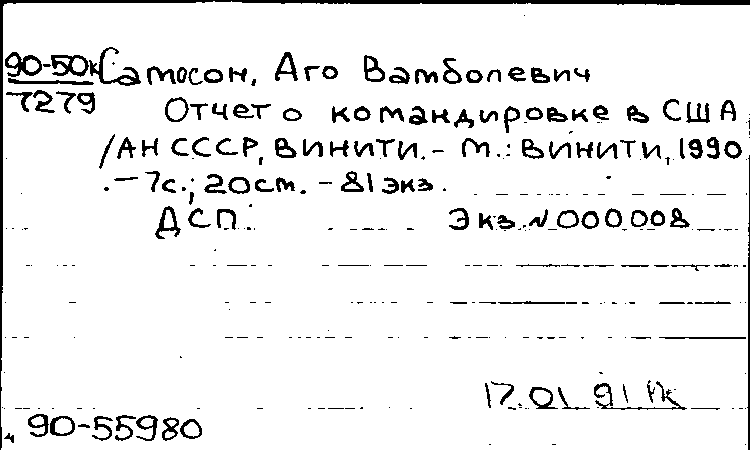 90-50к Самосон, Аго Вамболевич
7279 Отчет о командировке в США
/АН СССР, ВИНИТИ. - М.: ВИНИТИ, 1990
. - 7с.; 20см. - 81 экз.
ДСП. Экз. N 000008
17.01 91
90-55980